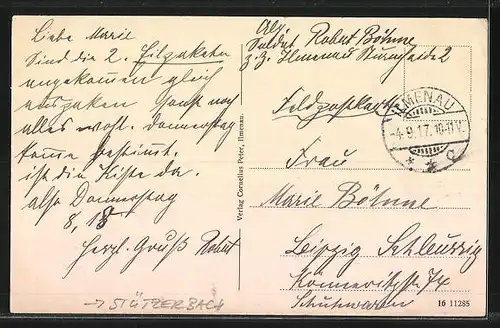 Liebe Marie
Sind die 2. Eilpakete
angekommen gleich
auspaken sonst noch
alles wohl. Donnerstag
komme bestimmt.
ist die Kiste da.
also Donnerstag
8,18
Herzl. Gruß Robert
→ STÜTZERBACH
Verlag Cornelius Peter, Ilmenau.
Abs.
Soldat Robert Böhme
z. Z. Ilmenau Sturmheide 2
Feldpostkarte
ILMENAU
-4.9.17. 10-11V.
* * c
Frau
Marie Böhme
Leipzig Schleussig
Könneritzstr 74
Schuhwaren
16 11285